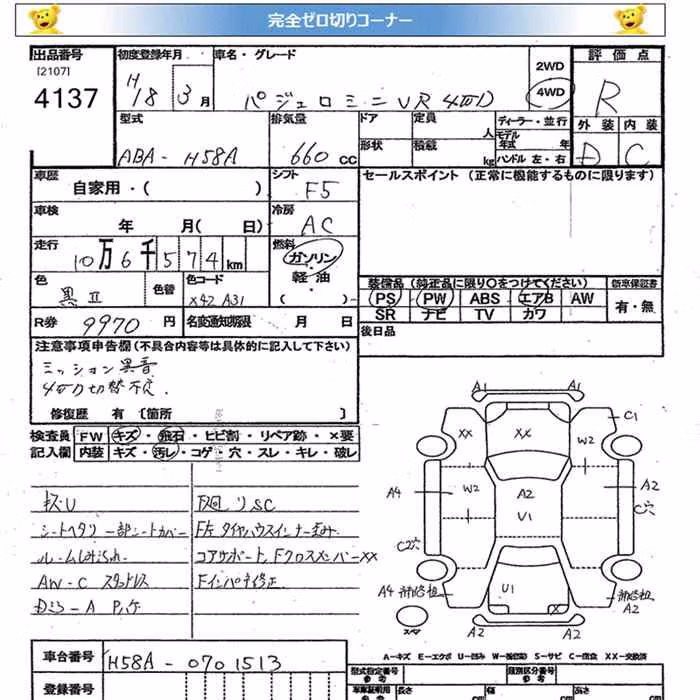 完全ゼロ切りコーナー
出品番号
[2107]
4137
初度登録年月
H18 3月
車名・グレード
パジェロミニ VR 4WD
2WD
4WD
評価点
R
型式
ABA-H58A
排気量
660 cc
ドア
形状
定員
人
積載
kg
ディーラー・並行
モデル年式 年
ハンドル 左・右
外装 内装
D C
車歴
自家用・( )
シフト
F5
セールスポイント (正常に機能するものに限ります)
車検
年 月( 日)
冷房
AC
走行
10万6千574km
燃料
ガソリン・
軽油・
( )
色
黒II
色替
色コード
X42 A31
装備品 (純正品に限り○をつけてください)
新車保証書
PS PW ABS エアB AW
有・無
SR ナビ TV カワ
R券 9970 円
名変通知期限 月 日
後日品
注意事項申告欄(不具合内容等は具体的に記入して下さい)
ミッション異音
4WD切替不良.
修復歴 有 〔箇所 〕
検査員
記入欄
FW キズ・飛石・ヒビ割・リペア跡・×要
内装 キズ・汚レ・コゲ・穴・スレ・キレ・破レ
キズU
シートヘタリ 一部シートカバー
AW・C スタッドレス
下廻リSC
F左タイヤハウスインナー歪み
コアサポート、FクロスメンバーXX
Fインパネ修正
A1
A1
XX
XX
C1
W2
A4
W2
A2
U1
A2
C穴
C2穴
A4
補修粗
U1
X
補修粗
A2
スペア
A2
A2
A-キズ E-エクボ U-凹み W-波(板) S-サビ C-腐食 XX-交換済
車台番号
H58A-0701513
登録番号
型式指定番号
参考
類別区分番号
参考
車庫証明用
参考
長さ
幅
高さ